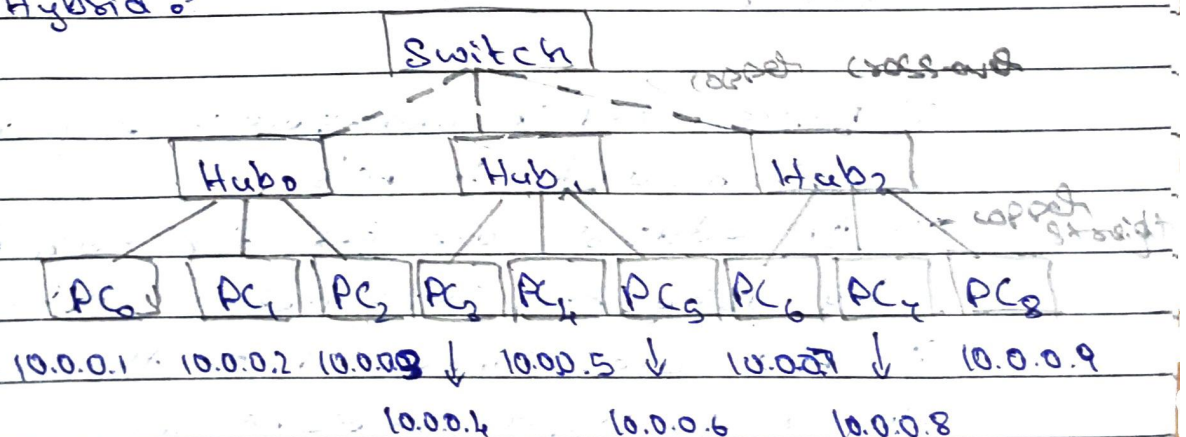 Hybrid :
Switch
copper cross-over
Hub0 Hub1 Hub2
copper straight
PC0 PC1 PC2 PC3 PC4 PC5 PC6 PC7 PC8
10.0.0.1 10.0.0.2 10.0.0.3 ↓ 10.0.0.5 ↓ 10.0.0.7 ↓ 10.0.0.9
10.0.0.4 10.0.0.6 10.0.0.8